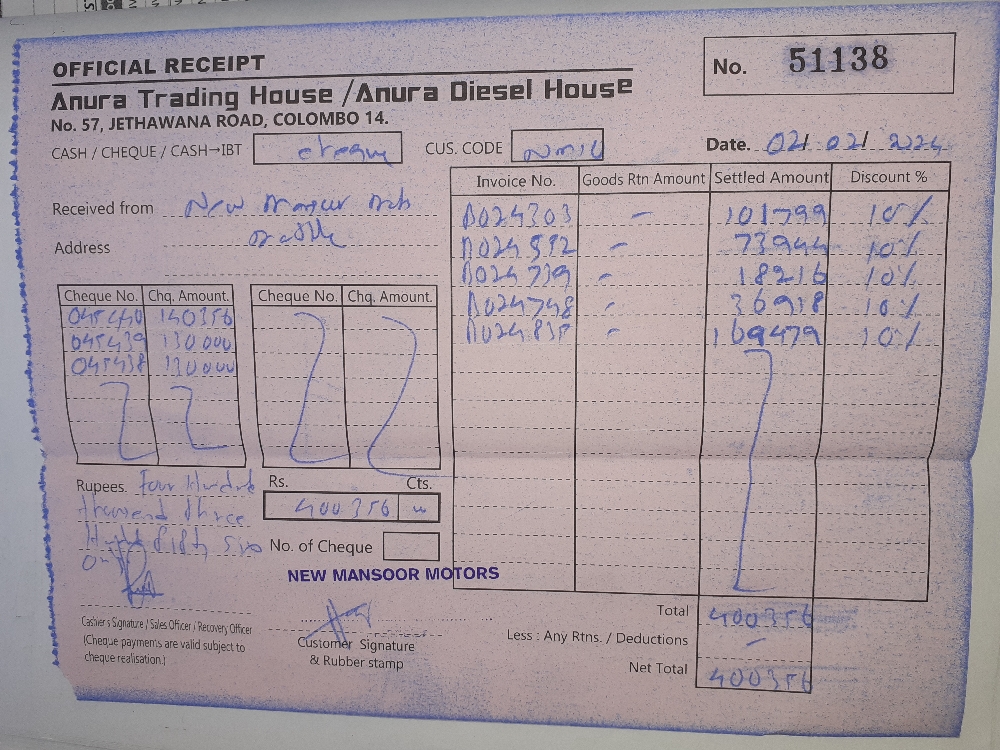 OFFICIAL RECEIPT
No. 51138
Anura Trading House / Anura Diesel House
No. 57, JETHAWANA ROAD, COLOMBO 14.
CASH / CHEQUE / CASH→IBT cheque CUS. CODE
Date. 02/ 02/ 2024
Received from New
Address
Invoice No. Goods Rtn Amount Settled Amount Discount %
A024303 - 101799 10%
A024592 - 73944 10%
A024739 - 18216 10%
A024748 - 36918 10%
A024835 - 169479 10%
Cheque No. Chq. Amount. Cheque No. Chq. Amount.
045440 140356
045439 130000
045438 130000
Rupees. Four Hundred
thousand three
Hund fifty six
only
Rs. Cts.
400356
No. of Cheque
NEW MANSOOR MOTORS
Cashier's Signature / Sales Officer / Recovery Officer
(Cheque payments are valid subject to
cheque realisation.)
Customer Signature
& Rubber stamp
Total 400356
Less : Any Rtns. / Deductions -
Net Total 400356